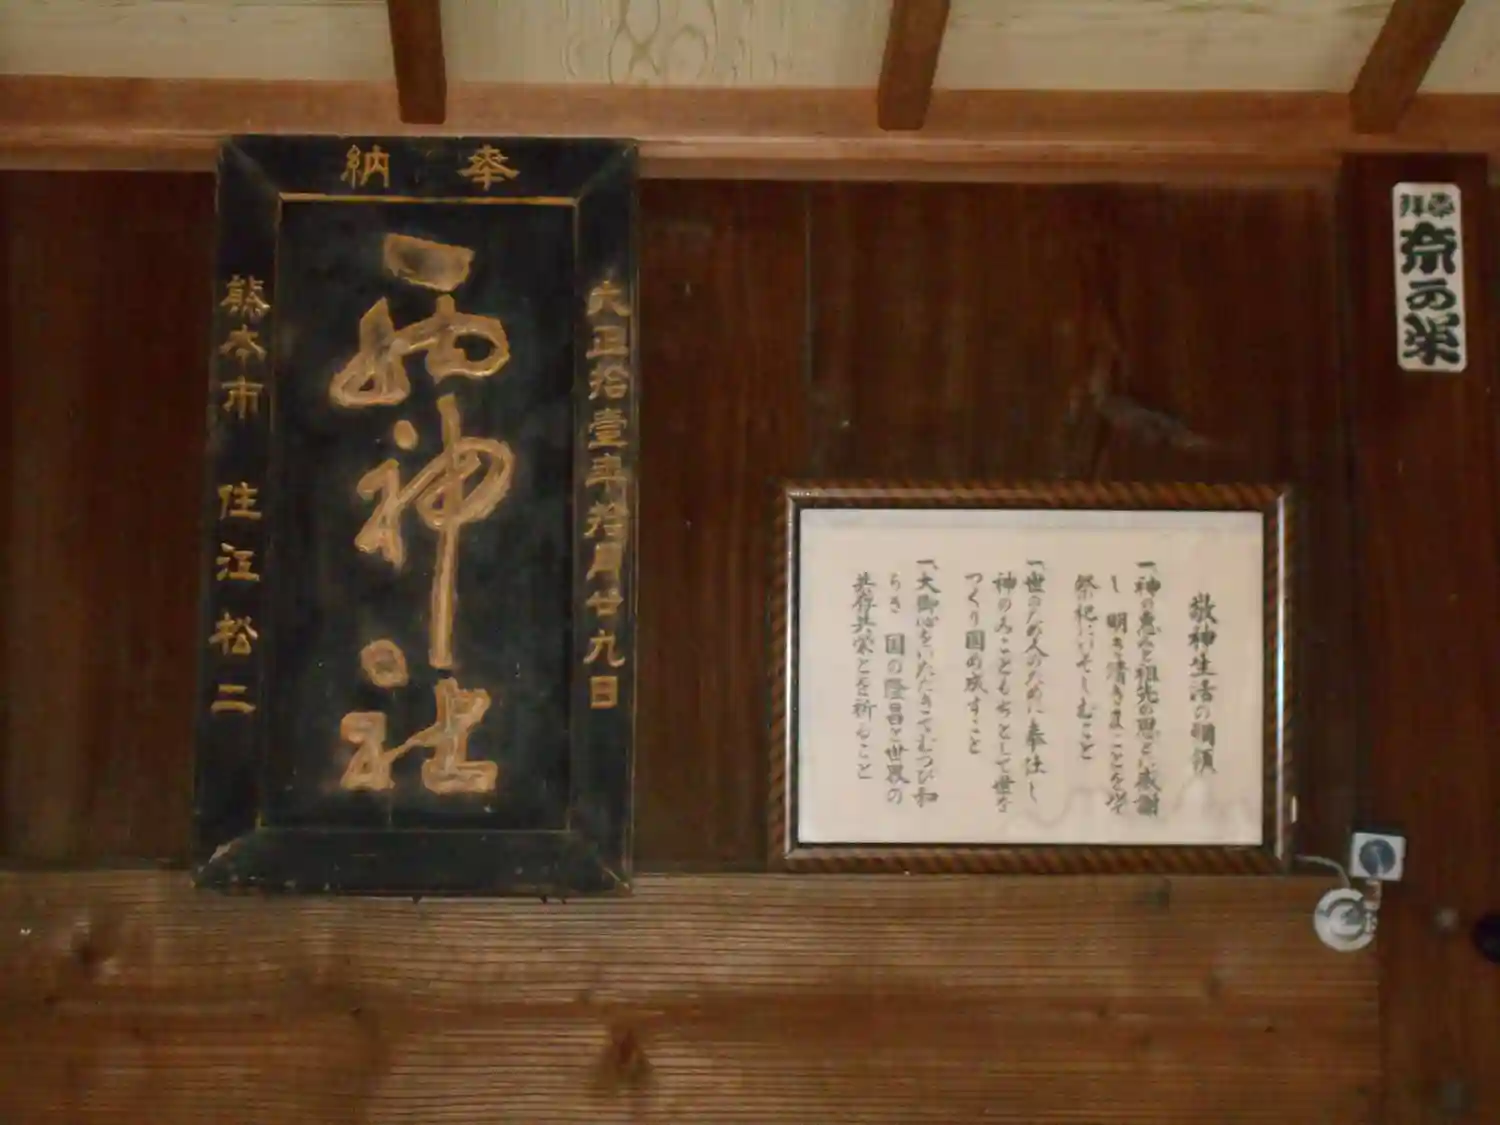 奉納
大正拾壹年拾月廿九日
神社
熊本市 住江松二
敬神生活の綱領
一、神の恵みと祖先の恩とに感謝
し 明き清きまことを以て
祭祀にいそしむこと
一、世のため人のために奉仕し
神のみこともちとして世を
つくり固め成すこと
一、大御心をいただきてむつび和
らぎ 国の隆昌と世界の
共存共栄とを祈ること